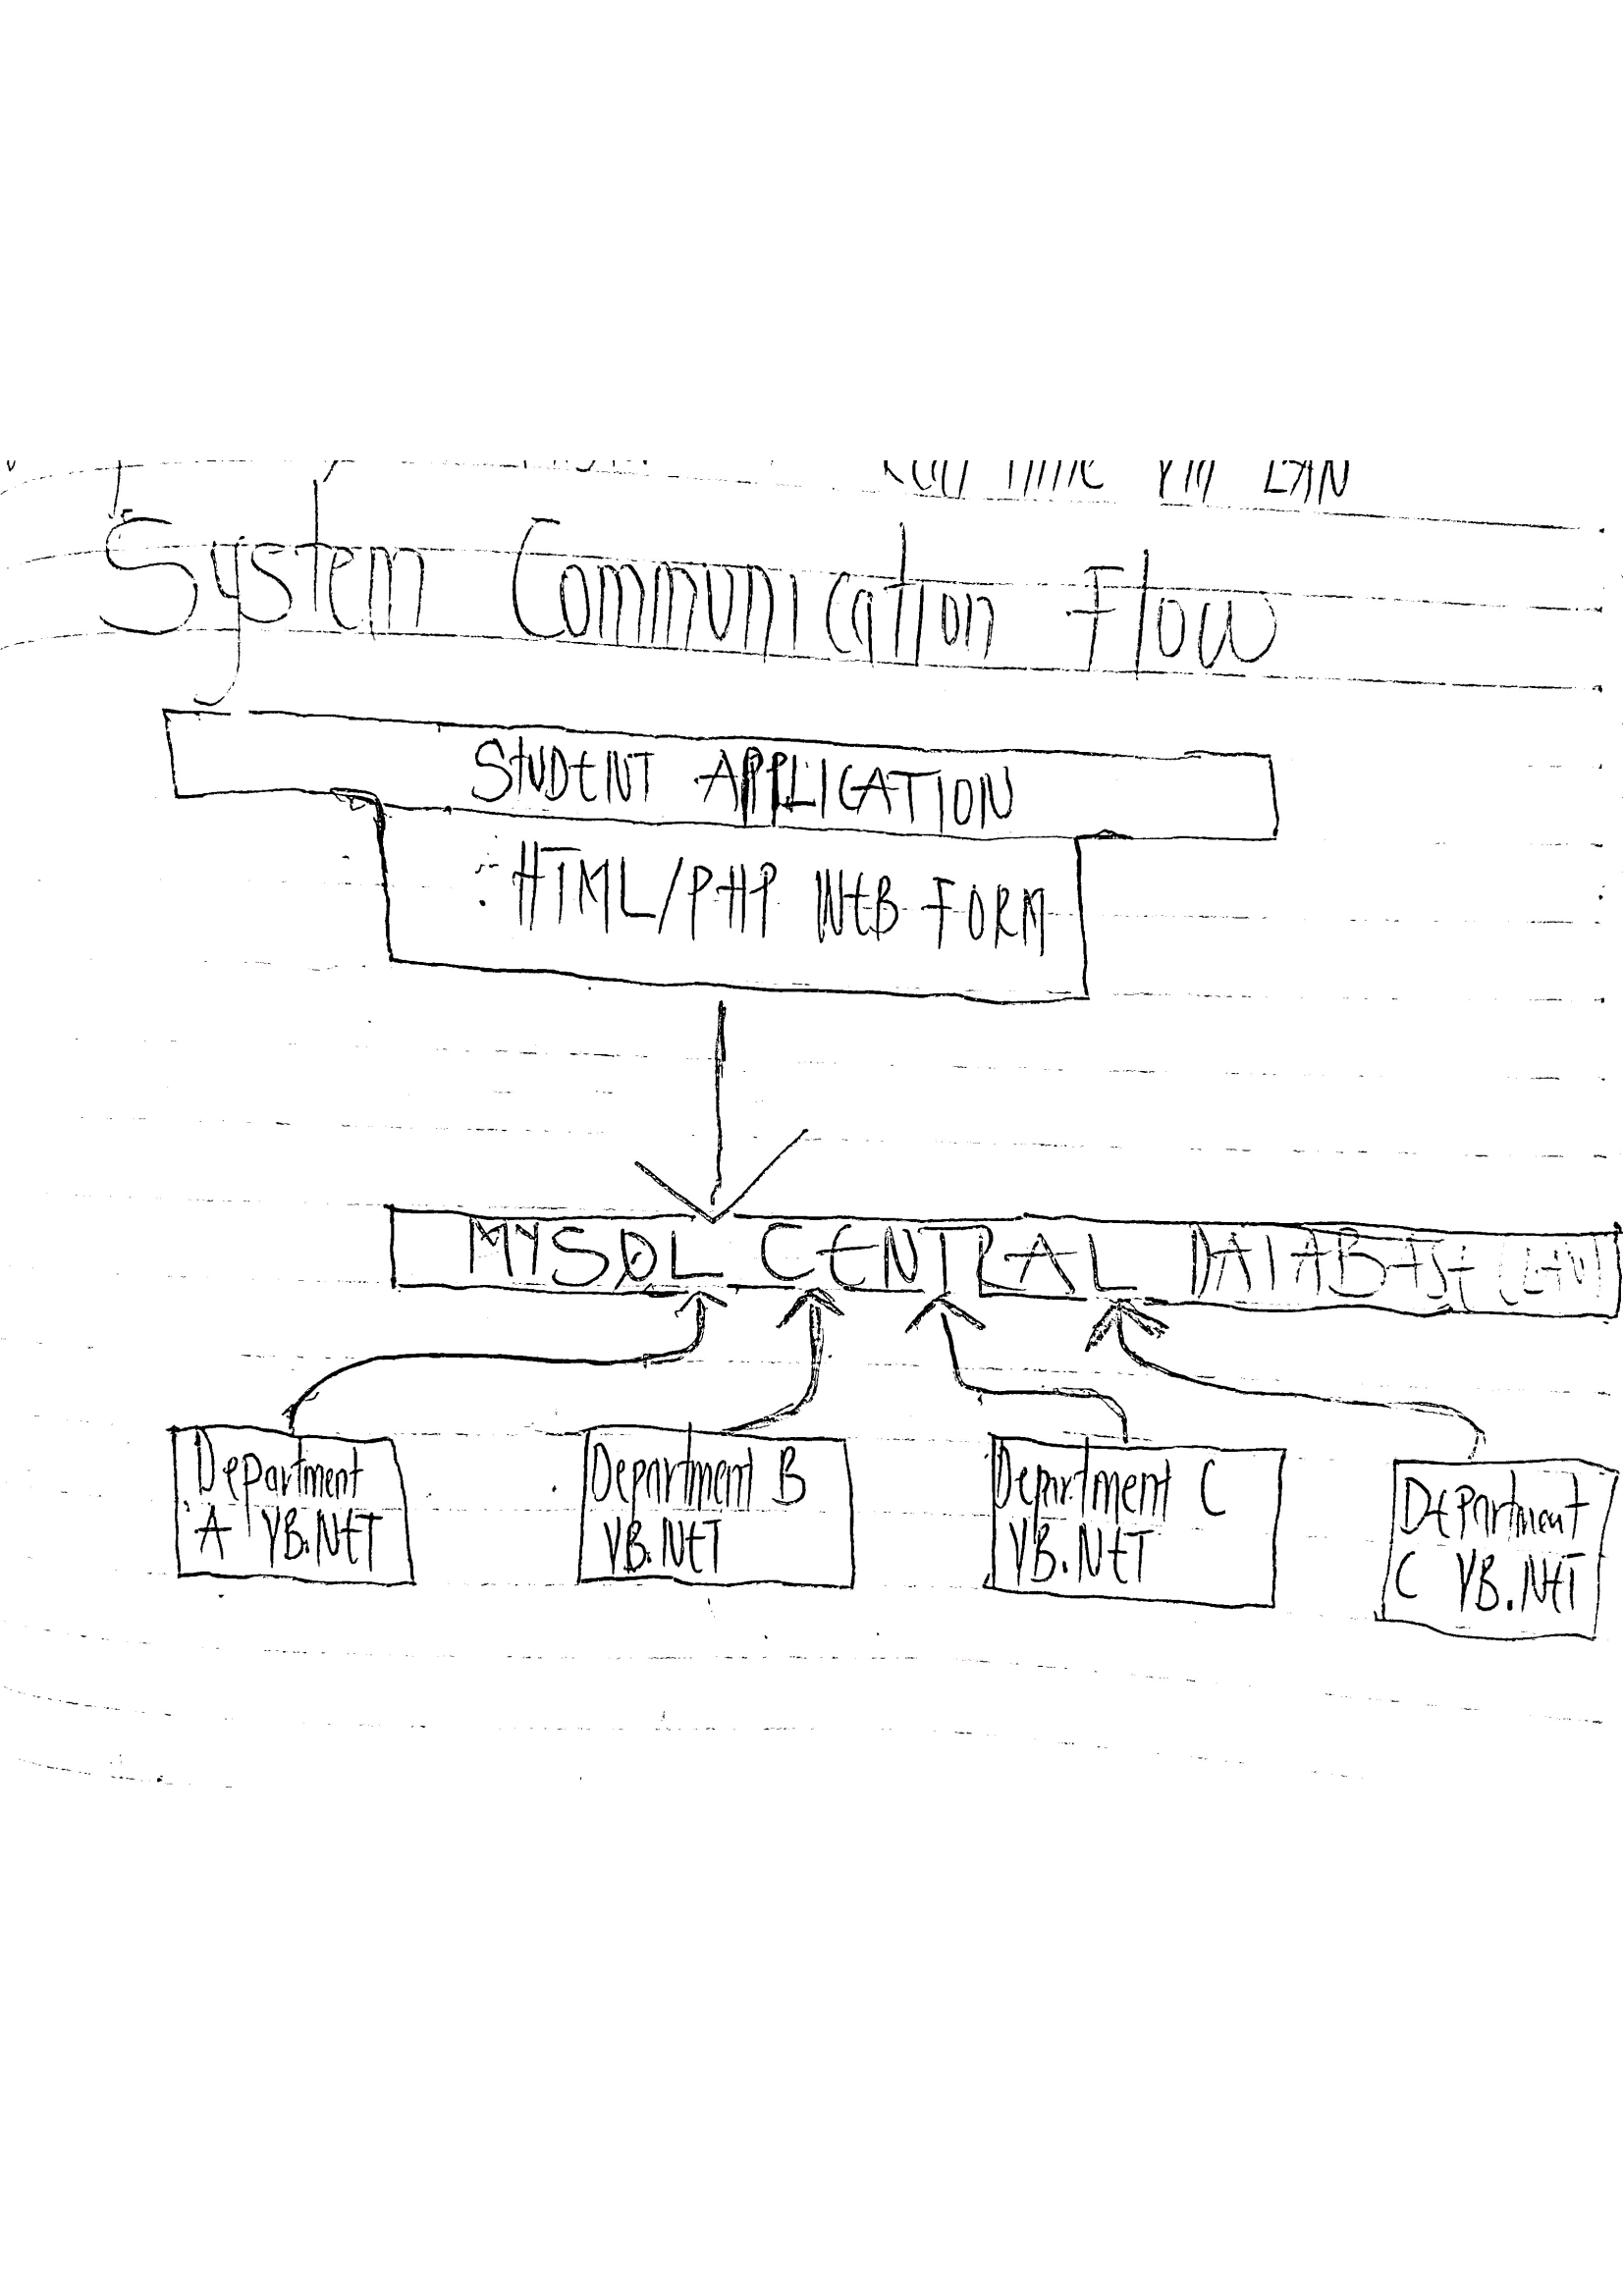 LAN
System Communication Flow
STUDENT APPLICATION
: HTML/PHP WEB FORM
MYSQL CENTRAL DATABASE (LAN)
Department
A VB.NET
Department B
VB.NET
Department C
VB.NET
Department
C VB.NET